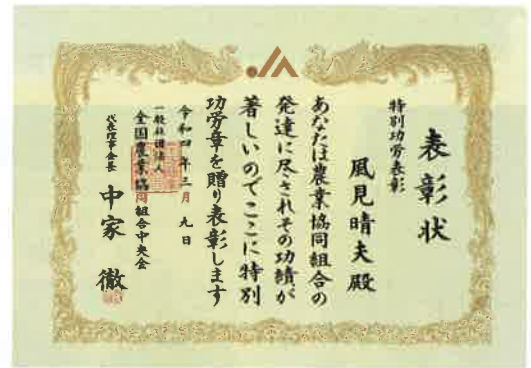 表彰状
特別功労表彰
風見晴夫殿
あなたは農業協同組合の
発達に尽されその功績が
著しいのでここに特別
功労章を贈り表彰します
令和四年三月九日
一般社団法人
全国農業協同組合中央会
代表理事会長 中家徹